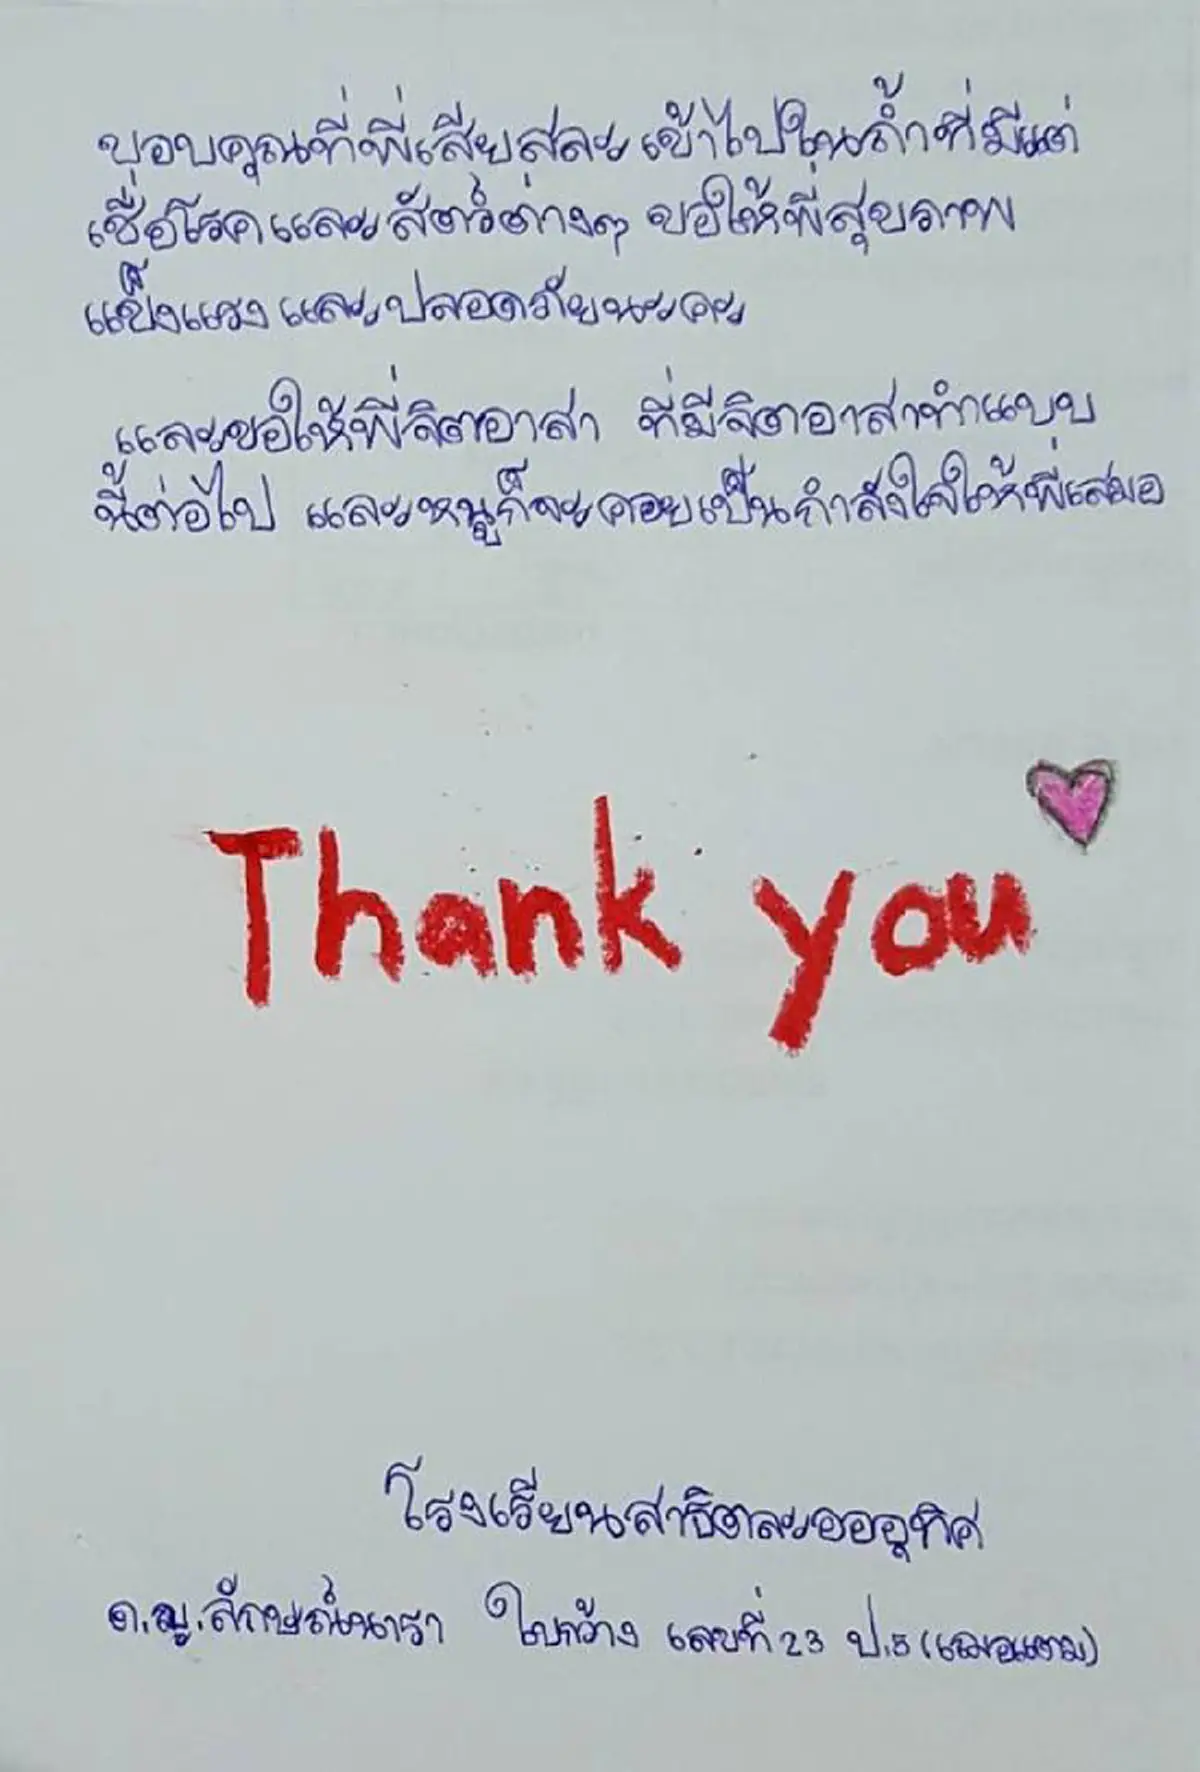 ขอบคุณที่พี่เสียสละเข้าไปในถ้ำที่มีแต่
เชื้อโรคและสัตว์ต่างๆ ขอให้พี่สุขภาพ
แข็งแรงและปลอดภัยนะคะ
และขอให้พี่จิตอาสา ที่มีจิตอาสาทำแบบ
นี้ต่อไป และหนูก็จะคอยเป็นกำลังใจให้พี่เสมอ
Thank you
โรงเรียนสาธิตละอออุทิศ
ด.ญ.ลักษณ์นารา ใบกว้าง เลขที่ 23 ป.5